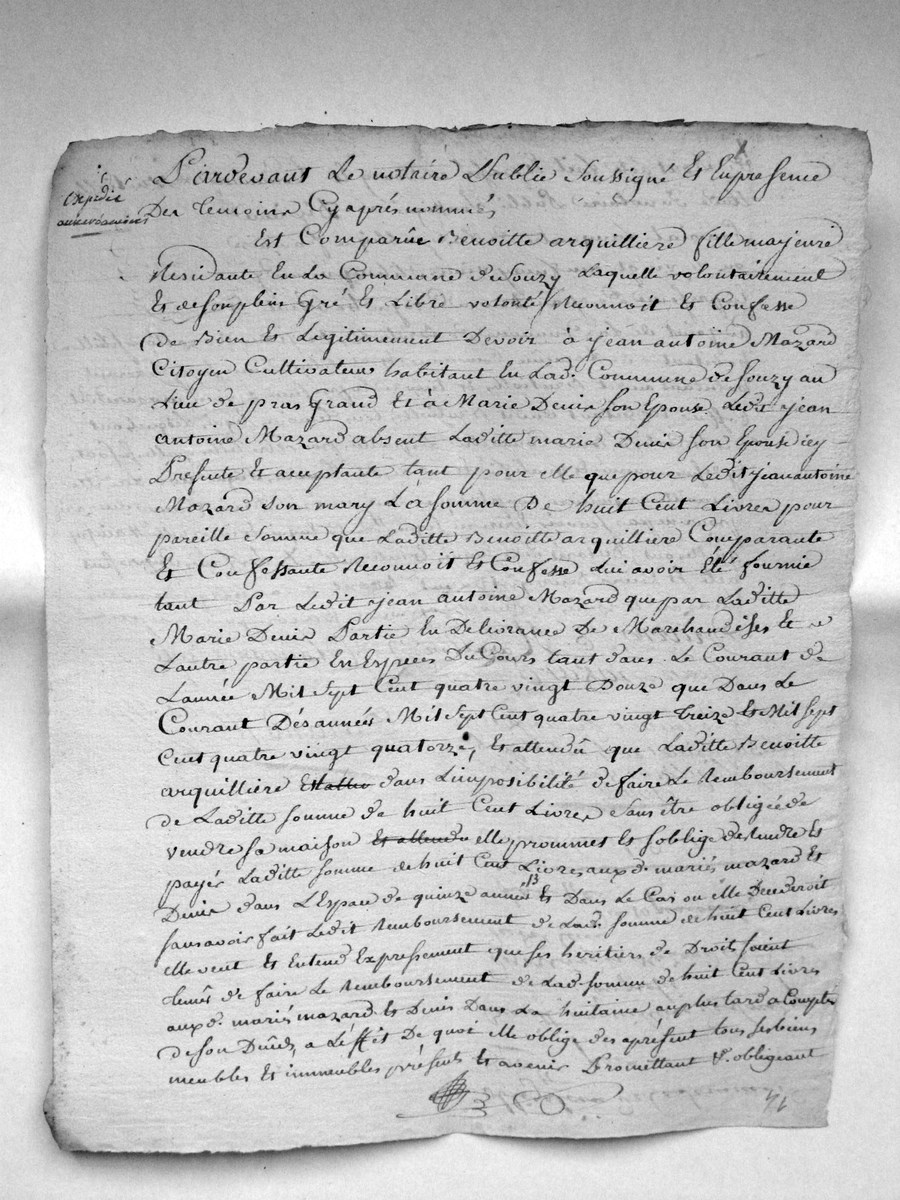 Expedié
aux créanciers
Pardevant Le notaire Public Soussigné Et En presence
Des temoins Cy aprés nommés
Est Comparüe Benoitte arquilliere fille majeure
Residante En La Commune de Souzy Laquelle volontairement
Et de Son plein Gré Et Libre volonté, Reconnoit Et Confesse
de Bien Et Legitimement Devoir à jean antoine Mazard
Citoyen Cultivateur habitant En Lad. Commune de Souzy au
Lieu de pras Grand Et à Marie Denis Son Epouse Ledit jean
antoine Mazard absent Laditte marie Denis Son Epouse icy
Presente Et acceptante tant pour elle que pour Ledit jean antoine
Mazard Son mary La Somme De huit Cent Livres pour
pareille Somme que Laditte Benoitte arquilliere Comparante
Et Confessante Reconnoit Et Confesse Lui avoir Eté fournie
tant Par Ledit jean antoine Mazard que par Laditte
Marie Denis Partie En Delivrance De Marchandises Et
Lautre partie En Especes Du Cours tant dans Le Courant de
Lannée Mil Sept Cent quatre vingt Douze que Dans Le
Courant Des années Mil Sept Cent quatre vingt treize Et Mil Sept
Cent quatre vingt quatorze, Et attendû que Laditte Benoitte
arquilliere dans Limposibilité de faire Le Remboursement
de Laditte Somme de huit Cent Livres Sans être obligée de
vendre Sa maison Et attendu elle prommet Et Soblige de Rendre Et
payer Laditte Somme de huit Cent Livres aux d. mariés mazard Et
Denis dans L'Espace de quinze années Et Dans Le Cas ou elle Decederoit
Sans avoir fait Ledit Remboursement de Lad. Somme de huit Cent Livres
elle veut Et Entend Expressement que Ses heritiers de Droit Soient
tenûs de faire Le Remboursement de Lad. Somme de huit Cent Livres
aux d. mariés mazard Et Denis Dans La huitaine au plus tard a Compter
de Son Decés, a L'effet De quoi elle oblige des aprésent tous Ses biens
meubles Et immeubles présents Et avenir Promettant &. obligeant